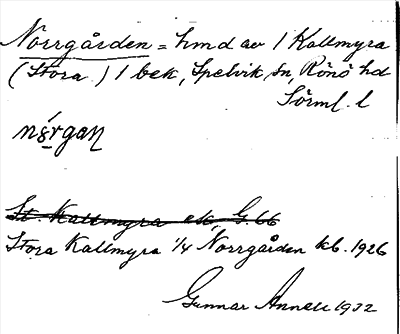 Norrgården = hmd av 1 Kallmyra
(Stora) 1 bek, Spelvik, sn, Rönö hd
Sörml. l
nórgaɳ
St. Kallmyra ek, G. 66
Stora Kallmyra 1/4 Norrgården kb. 1926
Gunnar 1932